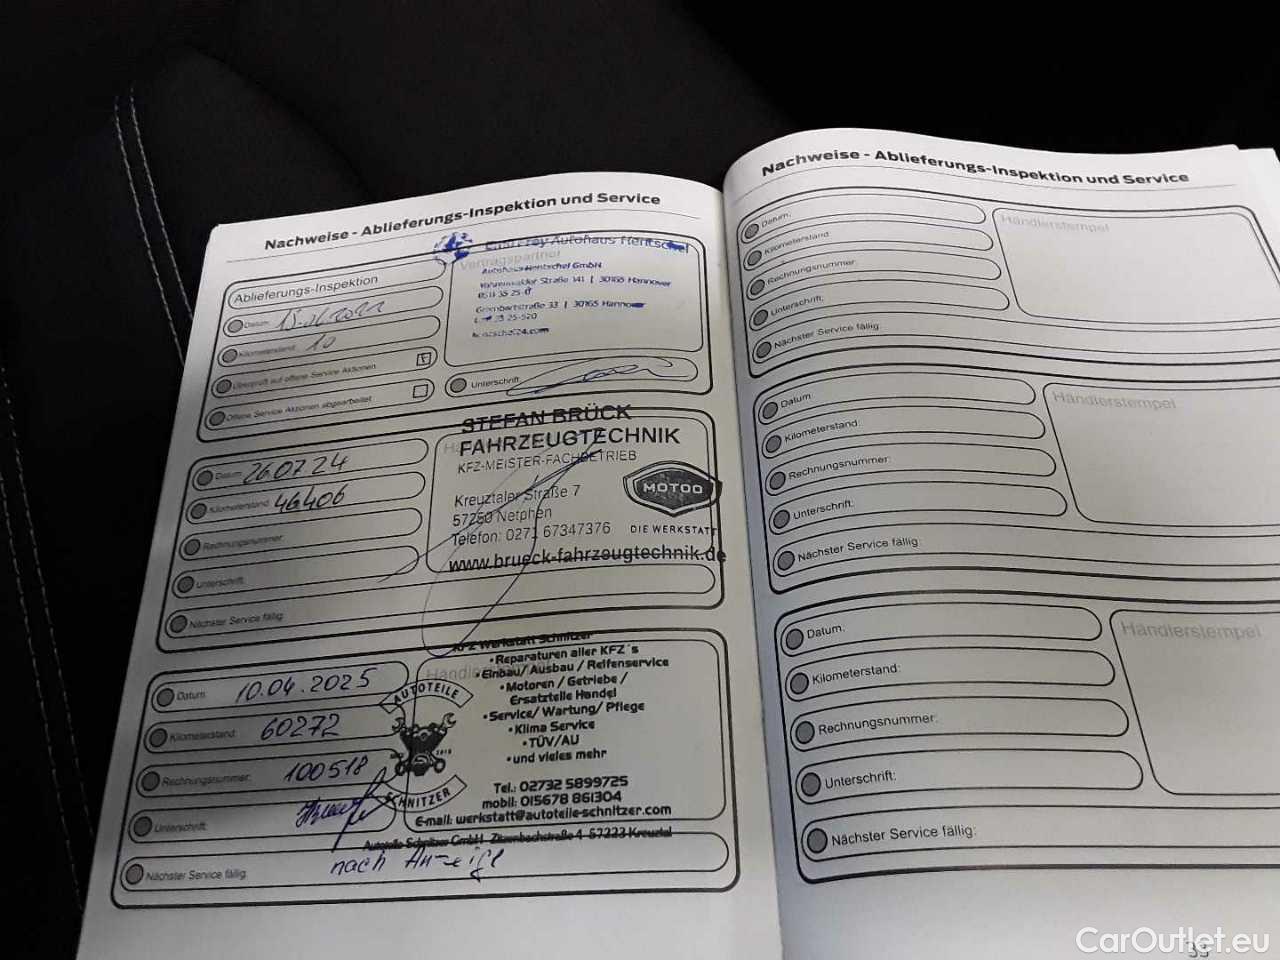 Nachweise - Ablieferungs-Inspektion und Service
Autohaus Hentschel
Vertragspartner
Autohaus Hentschel GmbH
Vahrenwalder Straße 141 | 30165 Hannover
Straße 33 | 30165 Hannover
Ablieferungs-Inspektion
Datum:
Kilometerstand: 10
Überprüft auf offene Service Aktionen
Offene Service Aktionen abgearbeitet
Unterschrift:
STEFAN BRÜCK
FAHRZEUGTECHNIK
KFZ-MEISTER-FACHBETRIEB
MOTOO
DIE WERKSTATT
Kreuztaler Straße 7
57250 Netphen
Telefon: 0271 67347376
www.brueck-fahrzeugtechnik.de
Datum: 26.07.24
Kilometerstand: 46406
Rechnungsnummer:
Unterschrift:
Nächster Service fällig:
KFZ Werkstatt Schnitzer
•Reparaturen aller KFZ´s
•Einbau/ Ausbau / Reifenservice
•Motoren / Getriebe /
Ersatzteile Handel
•Service/ Wartung/ Pflege
•Klima Service
•TÜV/AU
•und vieles mehr
AUTOTEILE
SCHNITZER
Tel.: 02732 5899725
mobil: 015678 861304
E-mail: werkstatt@autoteile-schnitzer.com
Autoteile Schnitzer GmbH Zitzenbachstraße 4 57223 Kreuztal
Datum: 10.04.2025
Kilometerstand: 60272
Rechnungsnummer: 100518
Unterschrift:
Nächster Service fällig: nach Anzeige
Nachweise - Ablieferungs-Inspektion und Service
Datum:
Händlerstempel
Kilometerstand:
Rechnungsnummer:
Unterschrift:
Nächster Service fällig:
Datum:
Händlerstempel
Kilometerstand:
Rechnungsnummer:
Unterschrift:
Nächster Service fällig:
Datum:
Händlerstempel
Kilometerstand:
Rechnungsnummer:
Unterschrift:
Nächster Service fällig:
33
CarOutlet.eu